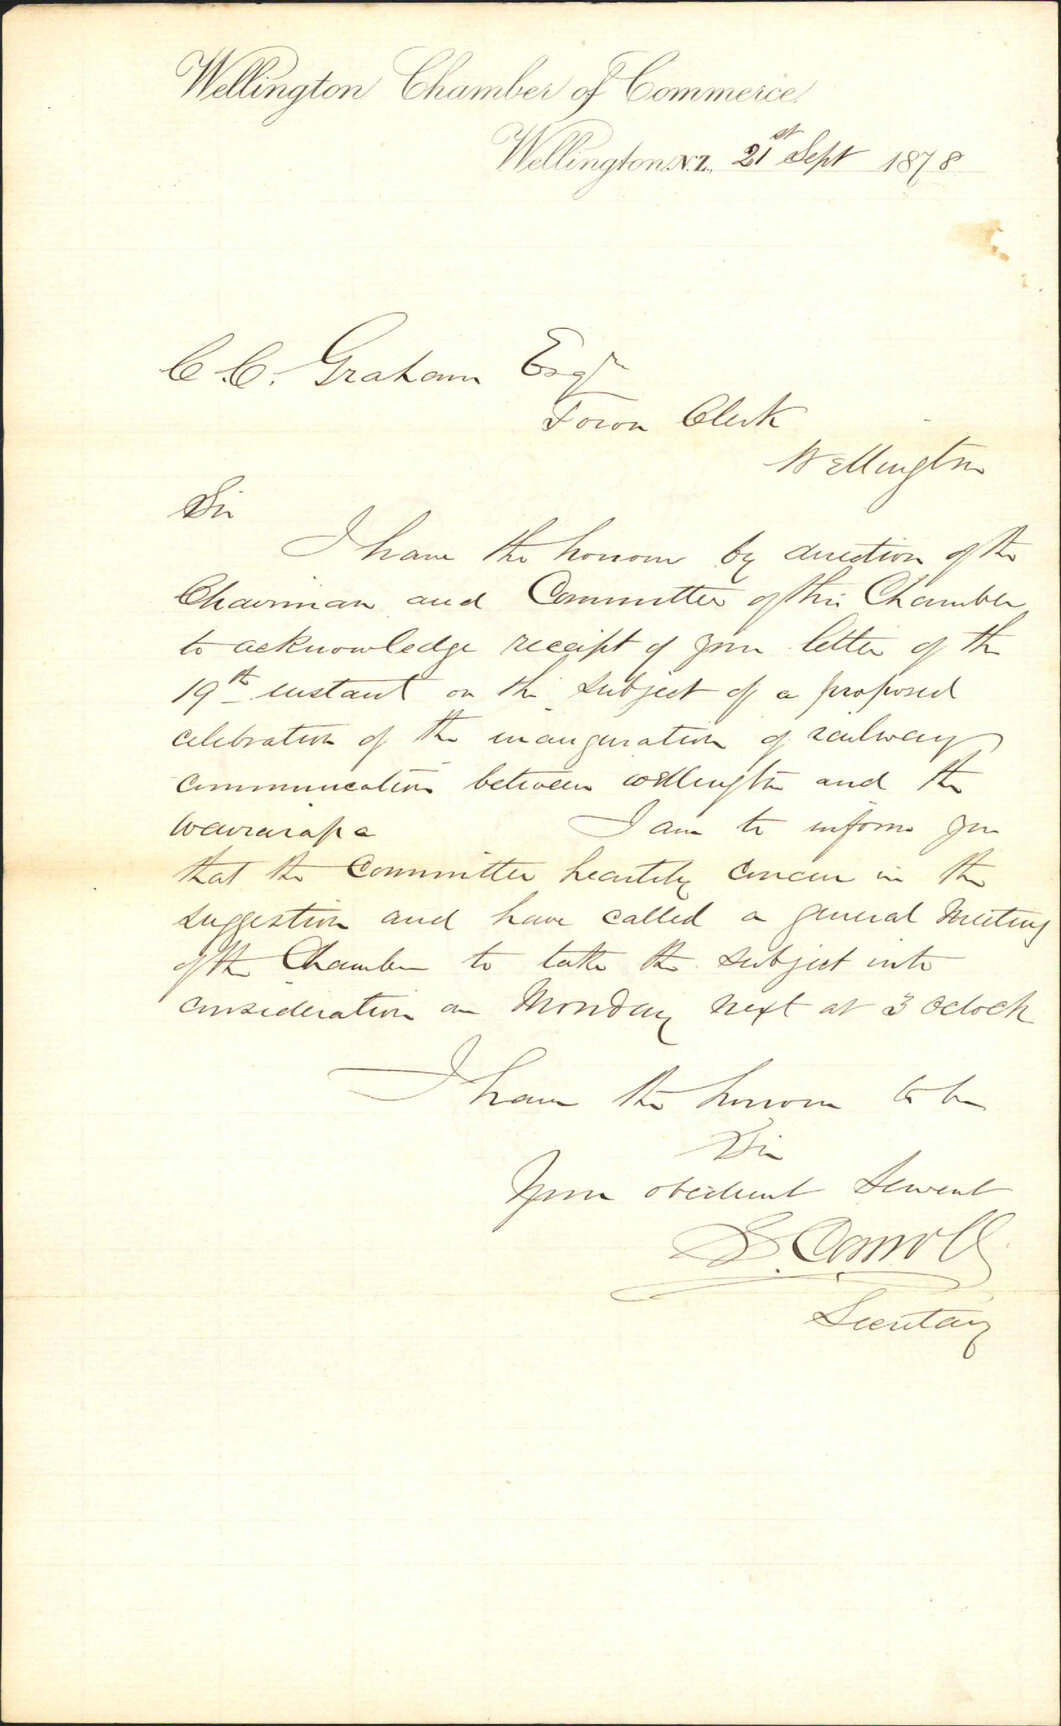 Wellington Chamber of Commerce.
Wellington N.Z. 21st Sept 1878
C. C. Graham Esqr
Town Clerk
Wellington
Sir
I have the honour by direction of the
Chairman and Committee of this Chamber
to acknowledge receipt of your letter of the
19th instant on the subject of a proposed
celebration of the inauguration of railway
communication between Wellington and the
Wairarapa I am to inform you
that the Committee heartily concur in the
suggestion and have called a general Meeting
of the Chamber to take the subject into
consideration on Monday next at 3 Oclock
I have the honour to be
Sir
Your obedient Servant
S. Carroll
Secretary